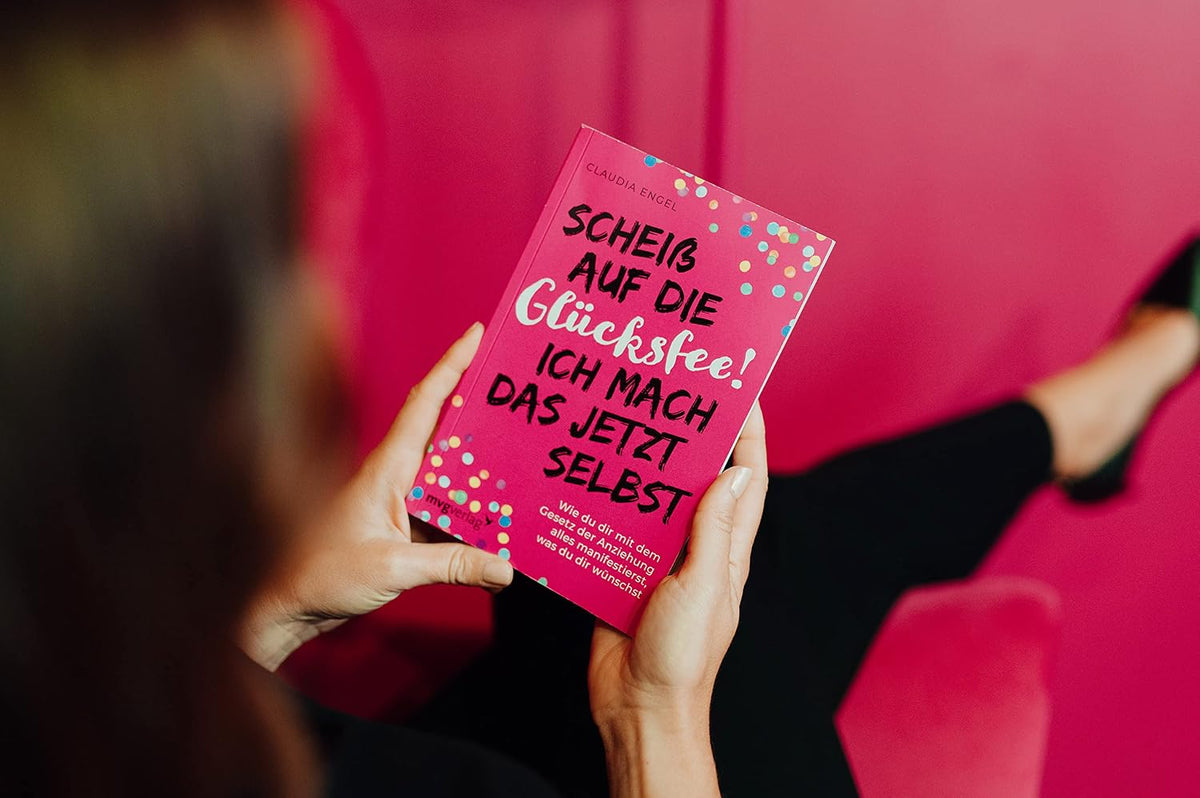 CLAUDIA ENGEL
SCHEIß
AUF DIE
Glücksfee!
ICH MACH
DAS JETZT
SELBST
Wie du dir mit dem
Gesetz der Anziehung
alles manifestierst,
was du dir wünschst
mvgverlag